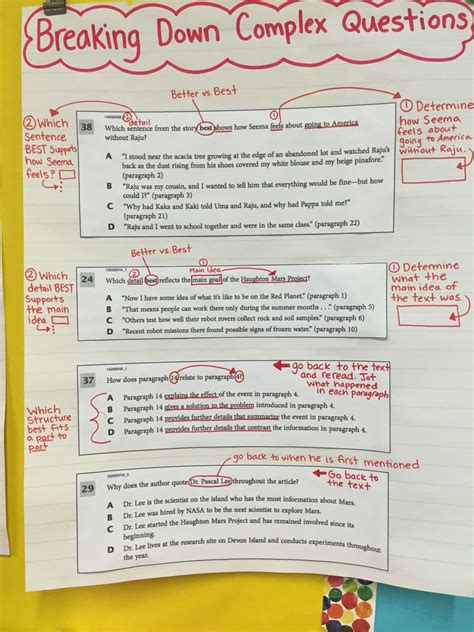 Breaking Down Complex Questions
Better vs. Best
② Which
Sentence
BEST Supports
how Seema
feels?
② detail
①
① Determine
how Seema
feels about
going to America
without Raju.
38
Which sentence from the story best shows how Seema feels about going to America
without Raju?
A "I stood near the acacia tree growing at the edge of an abandoned lot and watched Raju's
back as the dust rising from his shoes covered my white blouse and my beige pinafore."
(paragraph 2)
B "Raju was my cousin, and I wanted to tell him that everything would be fine—but how
could I?" (paragraph 3)
C "Why had Kaka and Kaki told Uma and Raju, and why had Pappa told me?"
(paragraph 21)
D "Raju and I went to school together and were in the same class." (paragraph 22)
Better vs. Best
①
Main Idea
② Which
detail BEST
Supports
the main
idea
① Determine
what the
main idea of
the text was.
24
Which detail best reflects the main goal of the Haughton Mars Project?
A "Now I have some idea of what it's like to be on the Red Planet." (paragraph 1)
B "That means people can work there only during the summer months . . ." (paragraph 5)
C "Others test how well their robot rovers collect rock and soil samples." (paragraph 6)
D "Recent robot missions there found possible signs of frozen water." (paragraph 10)
go back to the text
and reread. Jot
what happened
in each paragraph
37
How does paragraph 14 relate to paragraph 4?
Which
Structure
best fits
a part to
part
A Paragraph 14 explains the effect of the event in paragraph 4.
B Paragraph 14 gives a solution to the problem introduced in paragraph 4.
C Paragraph 14 provides further details that summarize the event in paragraph 4.
D Paragraph 14 provides further details that contrast the information in paragraph 4.
go back to when he is first mentioned
Go back to
the text
29
Why does the author quote Dr. Pascal Lee throughout the article?
A Dr. Lee is the scientist on the island who has the most information about Mars.
B Dr. Lee was hired by NASA to be the next scientist to explore Mars.
C Dr. Lee started the Haughton Mars Project and has remained involved since its
beginning.
D Dr. Lee lives at the research site on Devon Island and conducts experiments throughout
the year.